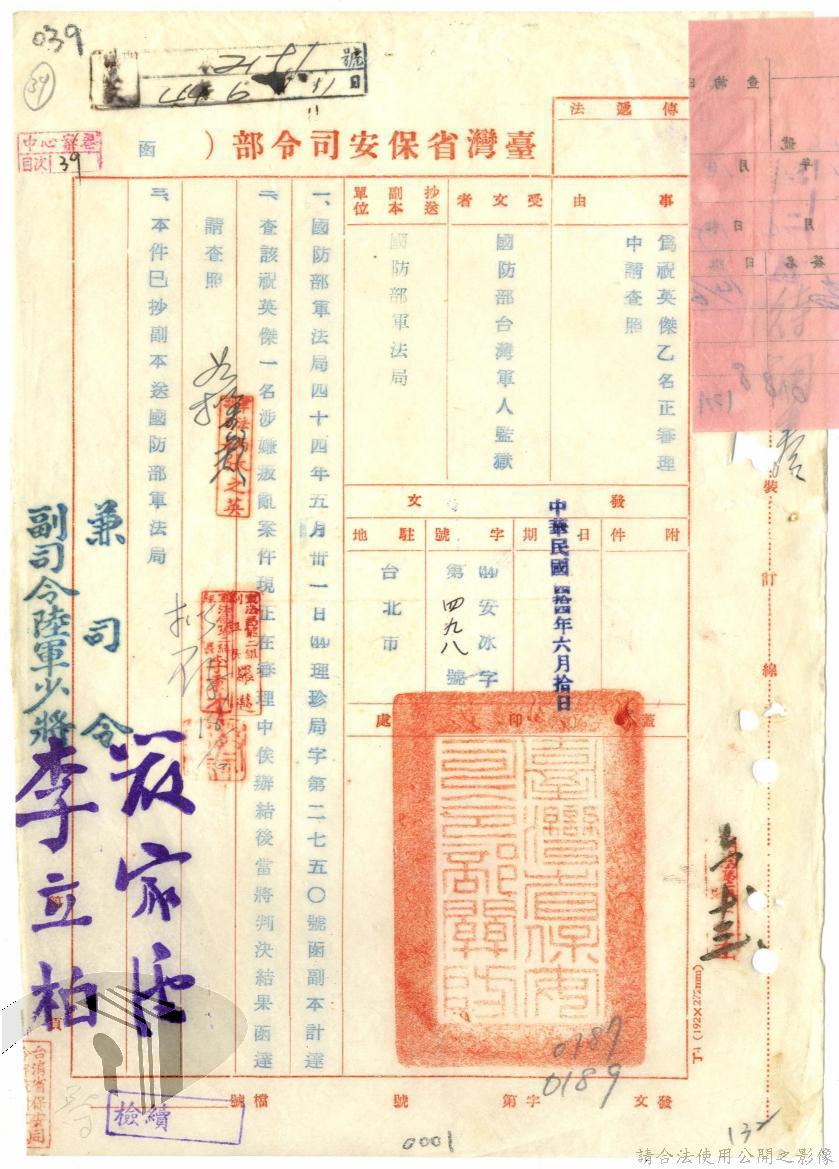 039
34
2151號
44 6 11日
中心編卷
目次 39
臺灣省保安司令部（ 函
傳遞法
事由
為祝英傑乙名正審理
中請查照
受文者
國防部台灣軍人監獄
抄送副本單位
國防部軍法局
發文
附件
日期
中華民國肆拾四年六月拾日
字號
(44)安冰字
第四九八號
駐地
台北市
蓋印處
臺灣省保安司令部關防
一、國防部軍法局四十四年五月卅一日(44)理珍局字第二七五〇號函副本計達
二、查該祝英傑一名涉嫌叛亂案件現正在審理中俟辦結後當將判決結果函達
請查照
三、本件已抄副本送國防部軍法局
兼司令
嚴家淦
副司令陸軍少將
李立柏
裝訂線
T4 (192×272mm)
0187
0189
發文 字第 號
檔號
檢續
0001
132
請合法使用公開之影像